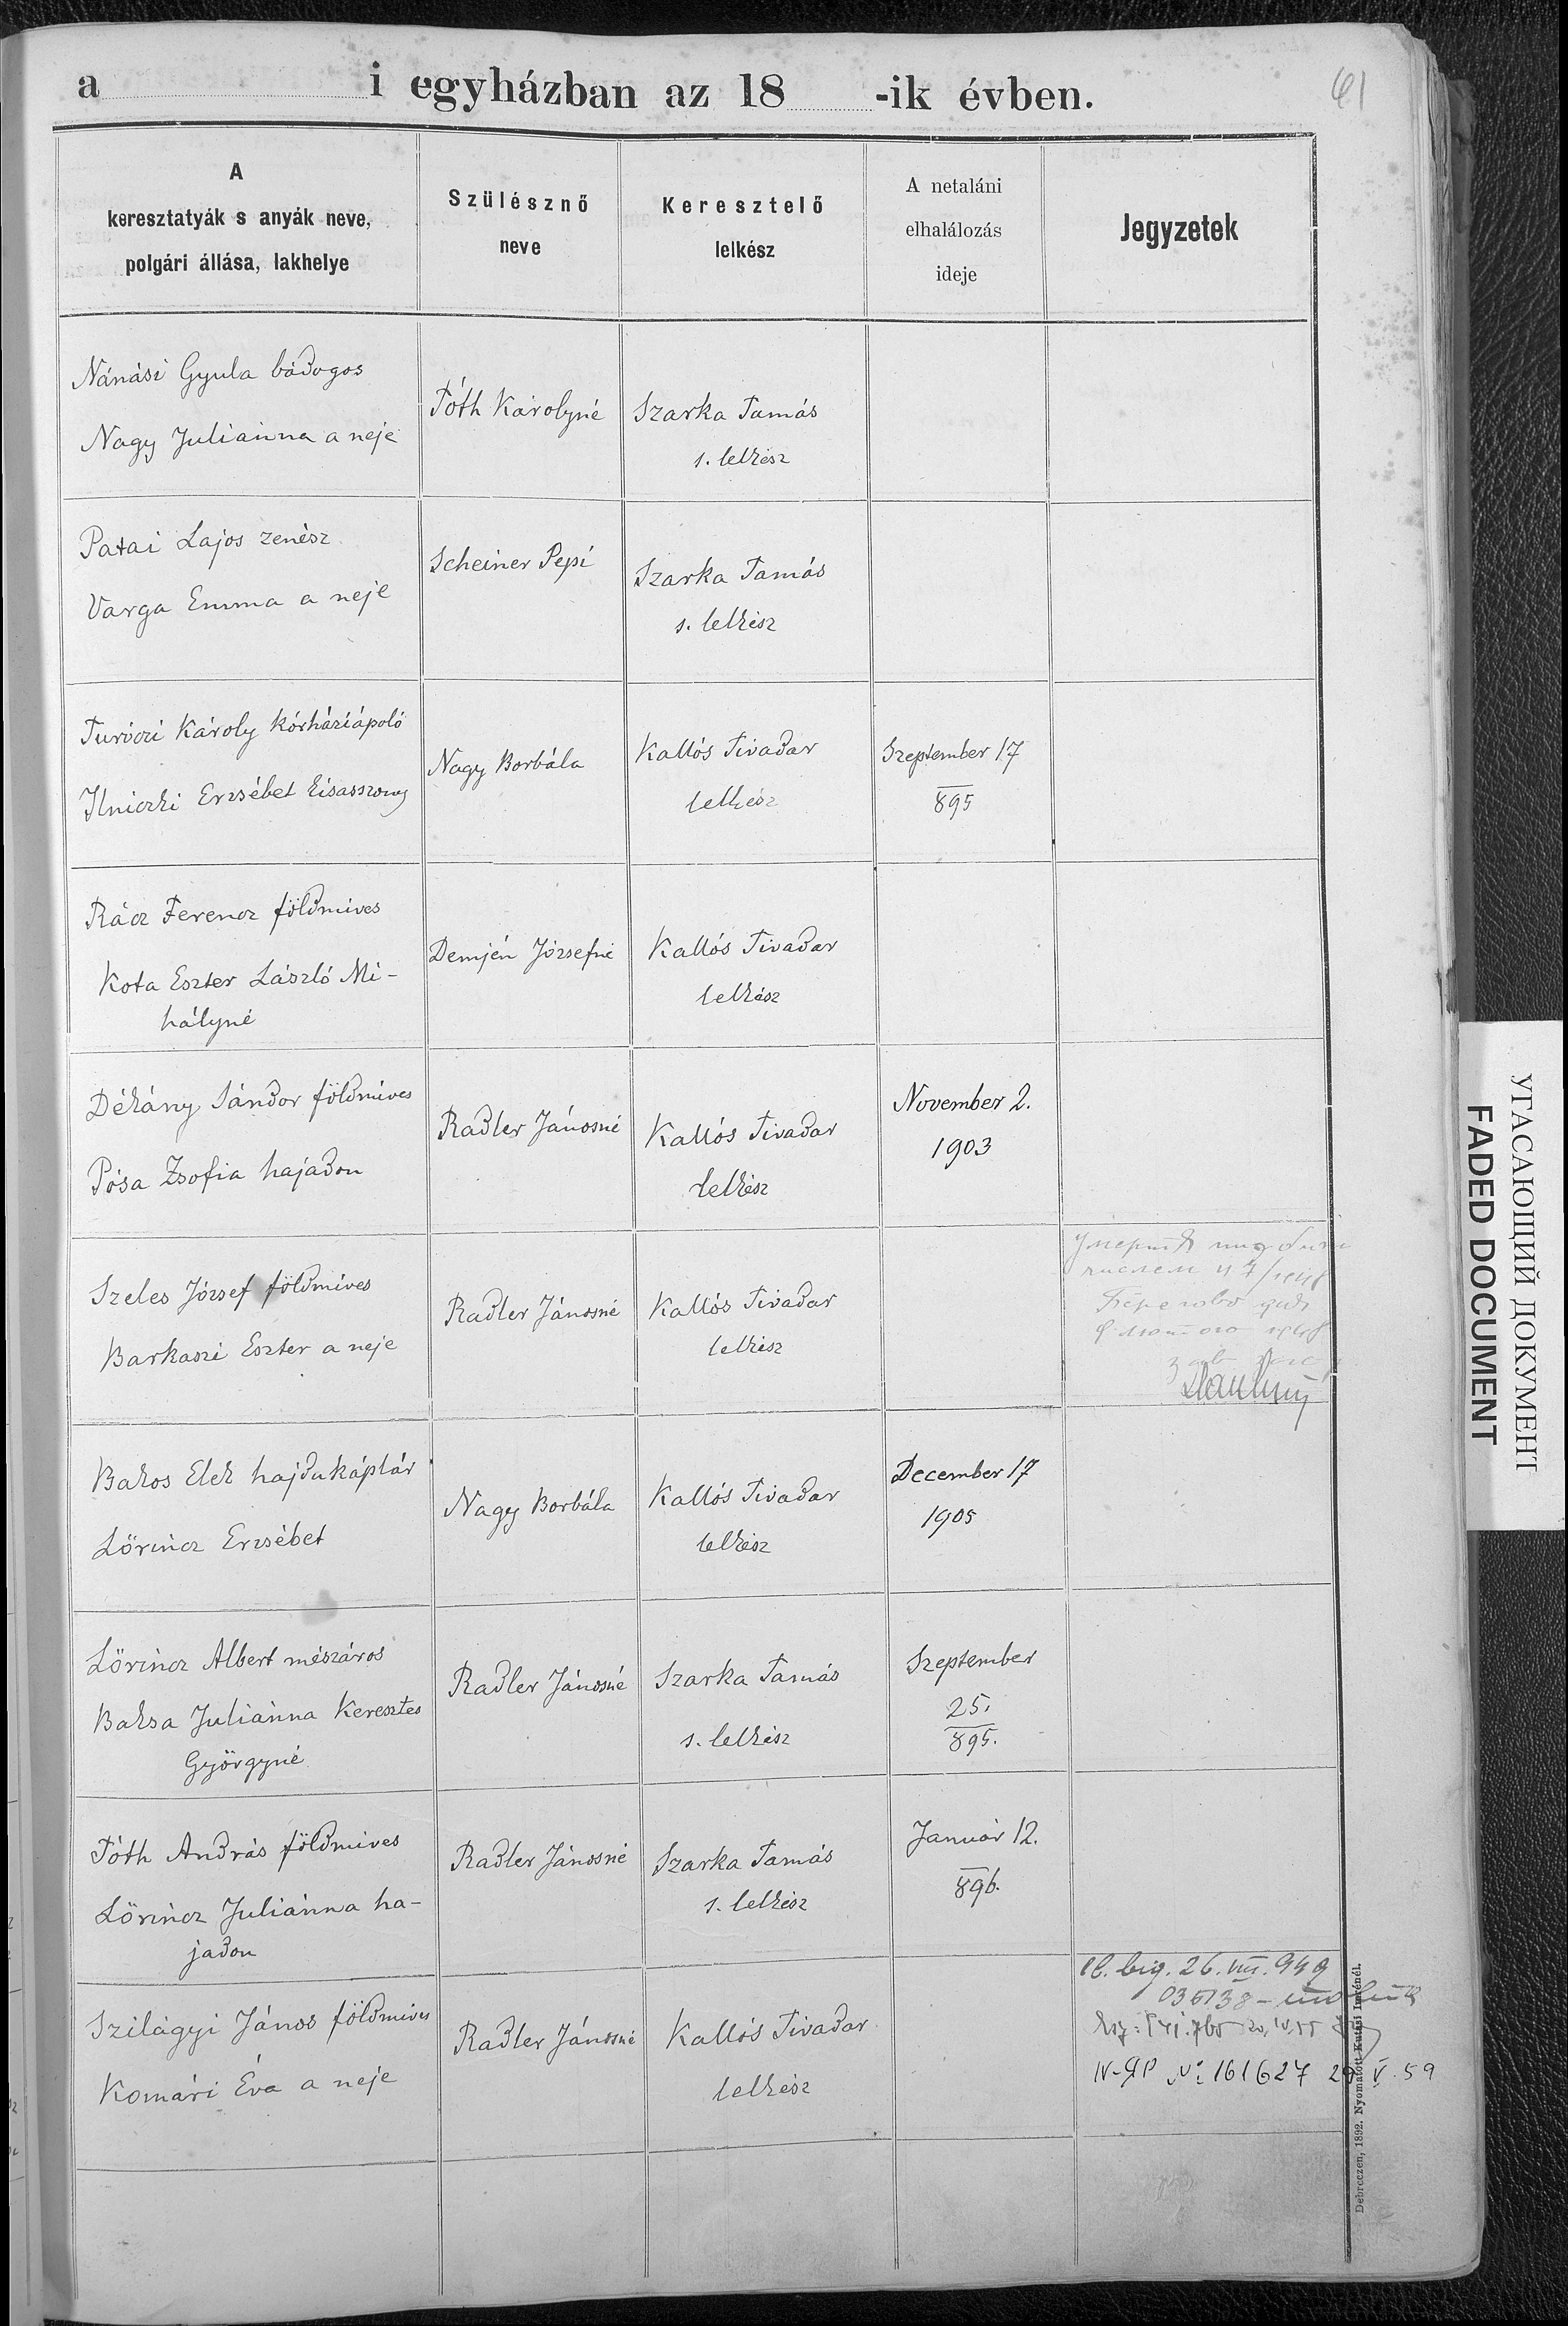 a i egyházban az 18 -ik évben.
61
A
keresztatyák s anyák neve,
polgári állása, lakhelye
Szülésznő
neve
Keresztelő
lelkész
A netaláni
elhalálozás
ideje
Jegyzetek
Nánási Gyula bádogos
Nagy Juliánna a neje
Tóth Károlyné
Szarka Tamás
s. lelkész
Patai Lajos zenész
Varga Emma a neje
Scheiner Pepi
Szarka Tamás
s. lelkész
Turóczi Károly kórháziápoló
Ilniczki Erzsébet kisasszony
Nagy Borbála
Kallós Tivadar
lelkész
Szeptember 17
895
Rácz Ferencz földmives
Kota Eszter László Mi-
hályné
Demjén Józsefné
Kallós Tivadar
lelkész
Dékány Sándor földmíves
Pósa Zsofia hajadon
Radler Jánosné
Kallós Tivadar
lelkész
November 2.
1903
Szeles József földmíves
Barkaszi Eszter a neje
Radler Jánosné
Kallós Tivadar
lelkész
Берегово
Bakos Elek hajdukáplár
Lörincz Erzsébet
Nagy Borbála
Kallós Tivadar
lelkész
December 17
1905
Lörincz Albert mészáros
Baksa Juliánna Keresztes
Györgyné
Radler Jánosné
Szarka Tamás
s. lelkész
Szeptember
25.
895.
Tóth András földmives
Lörincz Juliánna ha-
jadon
Radler Jánosné
Szarka Tamás
s. lelkész
Január 12.
896.
Szilágyi János földmives
Komári Éva a neje
Radler Jánosné
Kallós Tivadar
lelkész
26. VIII. 949
035138
IV-ЯР № 161627 29 V. 59
Debreczen, 1892. Nyomatott Kutasi Imrénél.
УГАСАЮЩИЙ ДОКУМЕНТ
FADED DOCUMENT